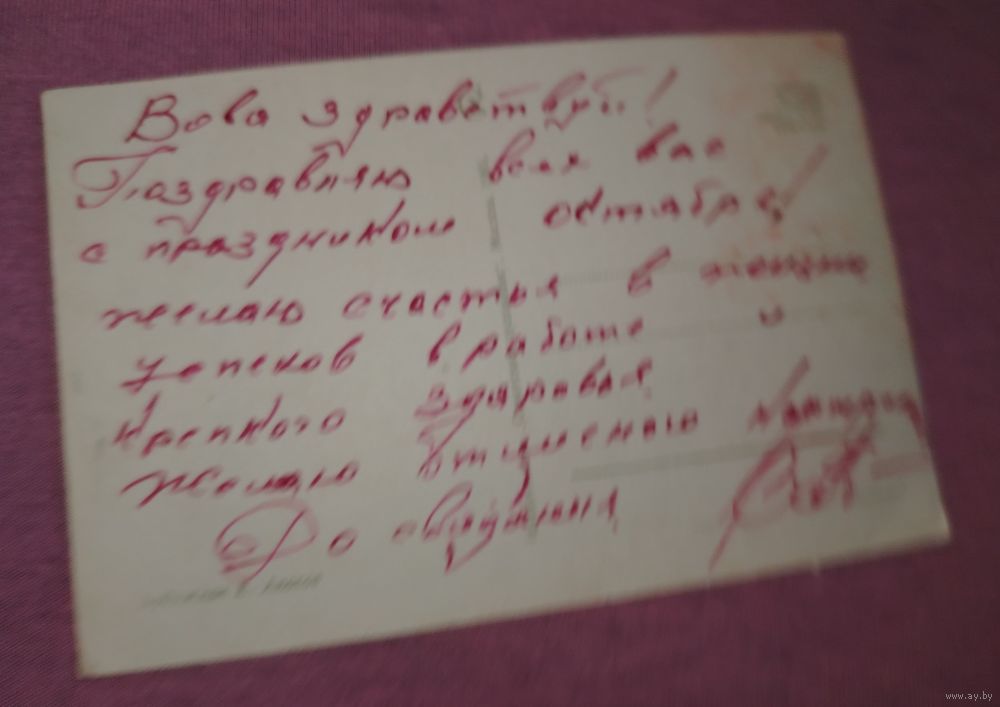 Вова здравствуй!
Поздравляю всех вас
с праздником октября!
желаю счастья в жизни
успехов в работе и
крепкого здоровья
желаю отличного
До свидания
www.ay.by